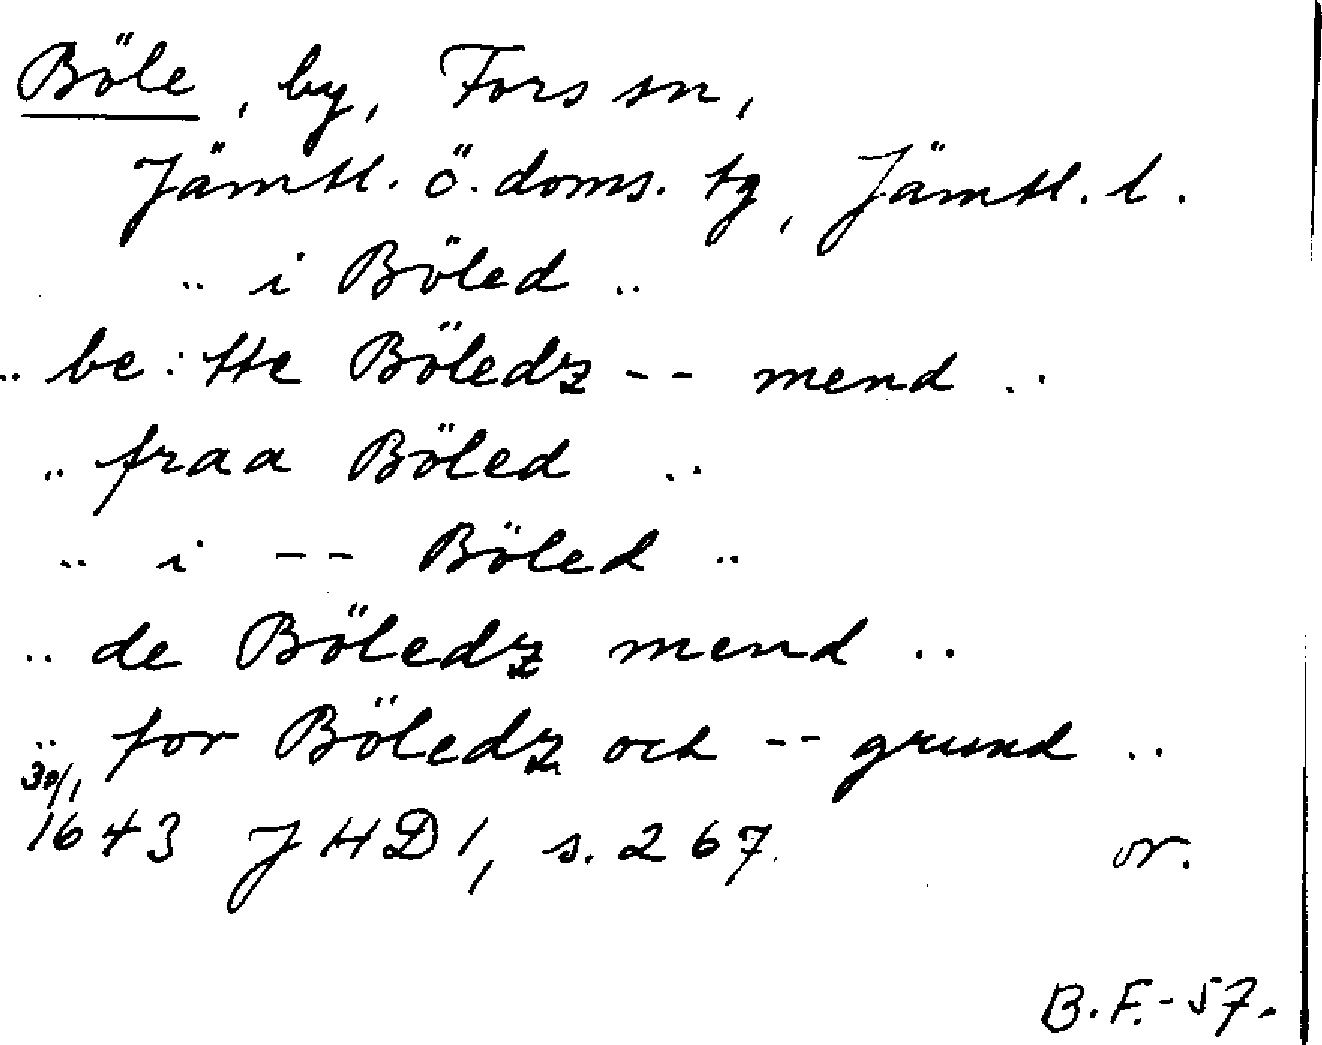 Böle, by, Fors sn,
Jämtl. ö. doms. tg, Jämtl. l.
.. i Böled ..
.. be:tte Böledz -- mend ..
.. fraa Böled ..
.. i -- Böled ..
.. de Böledz mend ..
.. for Böledz och -- grund ..
30/1
1643 JHD 1, s. 267. or.
B.F.-57.